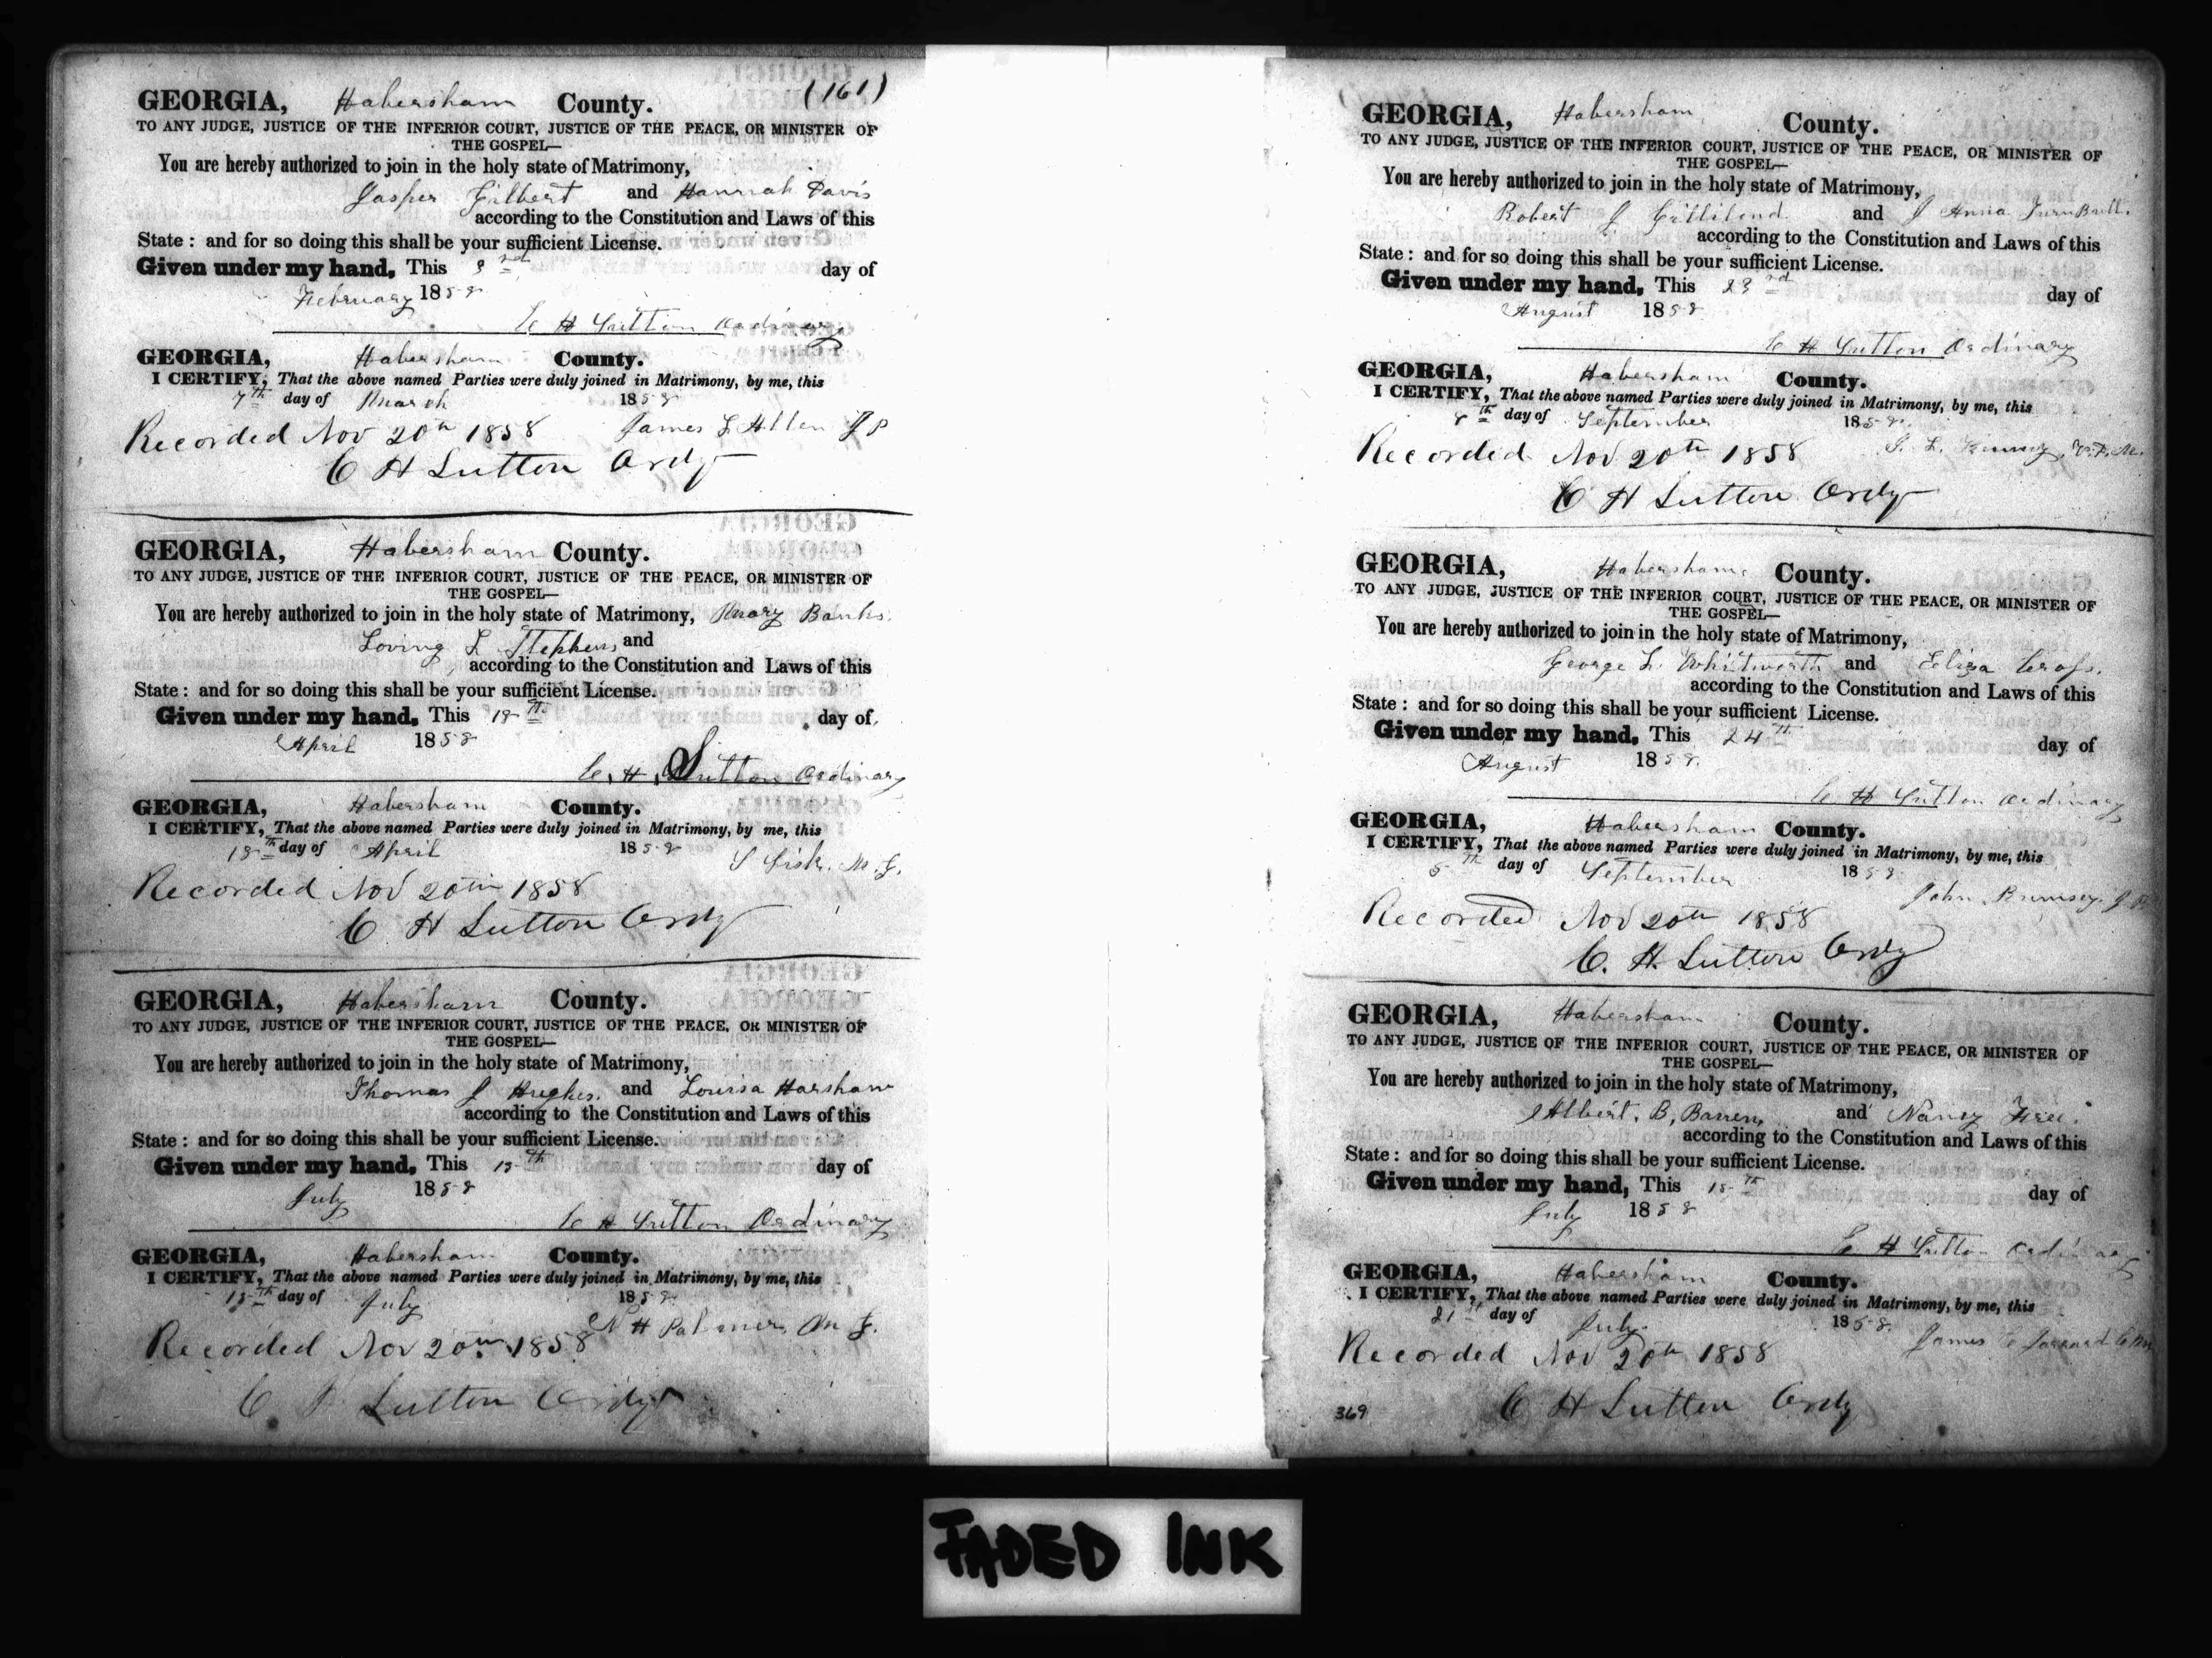 (161)
GEORGIA, Habersham County.
TO ANY JUDGE, JUSTICE OF THE INFERIOR COURT, JUSTICE OF THE PEACE, OR MINISTER OF
THE GOSPEL—
You are hereby authorized to join in the holy state of Matrimony,
Jasper Gilbert and Hannah Davis
according to the Constitution and Laws of this
State: and for so doing this shall be your sufficient License.
Given under my hand, This 3rd day of
February 1858
C H Sutton Ordinary
GEORGIA, Habersham County.
I CERTIFY, That the above named Parties were duly joined in Matrimony, by me, this
7th day of March 1858
Recorded Nov 20th 1858 James L Allen J P
C H Sutton Ordy
GEORGIA, Habersham County.
TO ANY JUDGE, JUSTICE OF THE INFERIOR COURT, JUSTICE OF THE PEACE, OR MINISTER OF
THE GOSPEL—
You are hereby authorized to join in the holy state of Matrimony, Mary Banks.
Loving L Stephens and
according to the Constitution and Laws of this
State: and for so doing this shall be your sufficient License.
Given under my hand, This day of
April 1858
C. H. Sutton Ordinary
GEORGIA, Habersham County.
I CERTIFY, That the above named Parties were duly joined in Matrimony, by me, this
day of April 1858
Sisk. M. G.
Recorded Nov 20th 1858
C H Sutton Ordy
GEORGIA, Habersham County.
TO ANY JUDGE, JUSTICE OF THE INFERIOR COURT, JUSTICE OF THE PEACE, OR MINISTER OF
THE GOSPEL—
You are hereby authorized to join in the holy state of Matrimony,
Thomas J Hughes. and Louisa Harsham
according to the Constitution and Laws of this
State: and for so doing this shall be your sufficient License.
Given under my hand, This 15th day of
July 1858
C H Sutton Ordinary
GEORGIA, Habersham County.
I CERTIFY, That the above named Parties were duly joined in Matrimony, by me, this
15th day of July 1858
H Palmer M G.
Recorded Nov 20th 1858
C H Sutton Ordy
GEORGIA, Habersham County.
TO ANY JUDGE, JUSTICE OF THE INFERIOR COURT, JUSTICE OF THE PEACE, OR MINISTER OF
THE GOSPEL—
You are hereby authorized to join in the holy state of Matrimony,
Robert J Gilliland and J Anna TurnBull.
according to the Constitution and Laws of this
State: and for so doing this shall be your sufficient License.
Given under my hand, This 23rd day of
August 1858
C H Sutton Ordinary
GEORGIA, Habersham County.
I CERTIFY, That the above named Parties were duly joined in Matrimony, by me, this
8th day of September 1858
Recorded Nov 20th 1858
C H Sutton Ordy
GEORGIA, Habersham County.
TO ANY JUDGE, JUSTICE OF THE INFERIOR COURT, JUSTICE OF THE PEACE, OR MINISTER OF
THE GOSPEL—
You are hereby authorized to join in the holy state of Matrimony,
George L. Whitworth and Eliza Cross.
according to the Constitution and Laws of this
State: and for so doing this shall be your sufficient License.
Given under my hand, This 24th day of
August 1858
C H Sutton Ordinary
GEORGIA, Habersham County.
I CERTIFY, That the above named Parties were duly joined in Matrimony, by me, this
5th day of September 1858
John Rumsey J P
Recorded Nov 20th 1858
C. H. Sutton Ordy
GEORGIA, Habersham County.
TO ANY JUDGE, JUSTICE OF THE INFERIOR COURT, JUSTICE OF THE PEACE, OR MINISTER OF
THE GOSPEL—
You are hereby authorized to join in the holy state of Matrimony,
Albert. B, and Nancy Free.
according to the Constitution and Laws of this
State: and for so doing this shall be your sufficient License.
Given under my hand, This 15th day of
July 1858
C H Sutton Ordinary
GEORGIA, Habersham County.
I CERTIFY, That the above named Parties were duly joined in Matrimony, by me, this
21st day of July 1858
James
Recorded Nov 20th 1858
C H Sutton Ordy
369
FADED INK